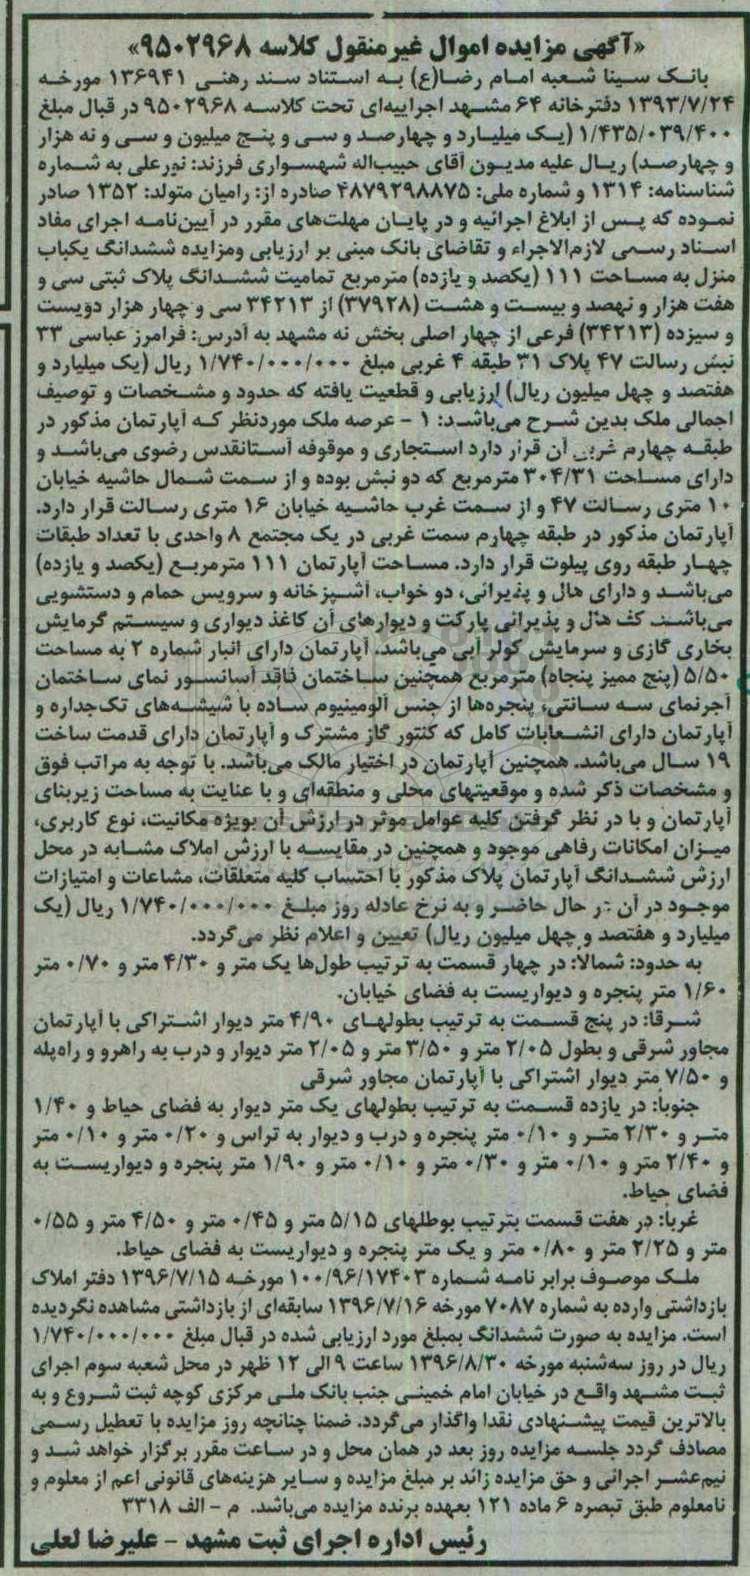 «آگهی مزایده اموال غیرمنقول کلاسه ۹۵۰۲۹۶۸»
بانک سینا شعبه امام رضا(ع) به استناد سند رهنی ۱۳۶۹۴۱ مورخه
۱۳۹۳/۷/۲۴ دفترخانه ۶۴ مشهد اجراییه‌ای تحت کلاسه ۹۵۰۲۹۶۸ در قبال مبلغ
۱/۴۳۵/۰۳۹/۴۰۰ (یک میلیارد و چهارصد و سی و پنج میلیون و سی و نه هزار
و چهارصد) ریال علیه مدیون آقای حبیب‌اله شهسواری فرزند: نورعلی به شماره
شناسنامه: ۱۳۱۴ و شماره ملی: ۴۸۷۹۲۹۸۸۷۵ صادره از: رامیان متولد: ۱۳۵۲ صادر
نموده که پس از ابلاغ اجرائیه و در پایان مهلت‌های مقرر در آیین‌نامه اجرای مفاد
اسناد رسمی لازم‌الاجراء و تقاضای بانک مبنی بر ارزیابی ومزایده ششدانگ یکباب
منزل به مساحت ۱۱۱ (یکصد و یازده) مترمربع تمامیت ششدانگ پلاک ثبتی سی و
هفت هزار و نهصد و بیست و هشت (۳۷۹۲۸) از ۳۴۲۱۳ سی و چهار هزار دویست
و سیزده (۳۴۲۱۳) فرعی از چهار اصلی بخش نه مشهد به آدرس: فرامرز عباسی ۳۳
نبش رسالت ۴۷ پلاک ۳۱ طبقه ۴ غربی مبلغ ۱/۷۴۰/۰۰۰/۰۰۰ ریال (یک میلیارد و
هفتصد و چهل میلیون ریال) ارزیابی و قطعیت یافته که حدود و مشخصات و توصیف
اجمالی ملک بدین شرح می‌باشد: ۱ - عرصه ملک موردنظر که آپارتمان مذکور در
طبقه چهارم غربی آن قرار دارد استجاری و موقوفه آستانقدس رضوی می‌باشد و
دارای مساحت ۳۰۴/۳۱ مترمربع که دو نبش بوده و از سمت شمال حاشیه خیابان
۱۰ متری رسالت ۴۷ و از سمت غرب حاشیه خیابان ۱۶ متری رسالت قرار دارد.
آپارتمان مذکور در طبقه چهارم سمت غربی در یک مجتمع ۸ واحدی با تعداد طبقات
چهار طبقه روی پیلوت قرار دارد. مساحت آپارتمان ۱۱۱ مترمربع (یکصد و یازده)
می‌باشد و دارای هال و پذیرائی، دو خواب، آشپزخانه و سرویس حمام و دستشویی
می‌باشد. کف هال و پذیرائی پارکت و دیوارهای آن کاغذ دیواری و سیستم گرمایش
بخاری گازی و سرمایش کولر آبی می‌باشد. آپارتمان دارای انبار شماره ۲ به مساحت
۵/۵۰ (پنج ممیز پنجاه) مترمربع همچنین ساختمان فاقد آسانسور نمای ساختمان
آجرنمای سه سانتی، پنجره‌ها از جنس آلومینیوم ساده با شیشه‌های تک‌جداره و
آپارتمان دارای انشعابات کامل که کنتور گاز مشترک و آپارتمان دارای قدمت ساخت
۱۹ سال می‌باشد. همچنین آپارتمان در اختیار مالک می‌باشد. با توجه به مراتب فوق
و مشخصات ذکر شده و موقعیتهای محلی و منطقه‌ای و با عنایت به مساحت زیربنای
آپارتمان و با در نظر گرفتن کلیه عوامل موثر در ارزش آن بویژه مکانیت، نوع کاربری،
میزان امکانات رفاهی موجود و همچنین در مقایسه با ارزش املاک مشابه در محل
ارزش ششدانگ آپارتمان پلاک مذکور با احتساب کلیه متعلقات، مشاعات و امتیازات
موجود در آن در حال حاضر و به نرخ عادله روز مبلغ ۱/۷۴۰/۰۰۰/۰۰۰ ریال (یک
میلیارد و هفتصد و چهل میلیون ریال) تعیین و اعلام نظر می‌گردد.
به حدود: شمالا: در چهار قسمت به ترتیب طول‌ها یک متر و ۴/۳۰ متر و ۰/۷۰ متر
۱/۶۰ متر پنجره و دیواریست به فضای خیابان.
شرقا: در پنج قسمت به ترتیب بطولهای ۴/۹۰ متر دیوار اشتراکی با آپارتمان
مجاور شرقی و بطول ۲/۰۵ متر و ۳/۵۰ متر و ۲/۰۵ متر دیوار و درب به راهرو و راه‌پله
و ۷/۵۰ متر دیوار اشتراکی با آپارتمان مجاور شرقی
جنوبا: در یازده قسمت به ترتیب بطولهای یک متر دیوار به فضای حیاط و ۱/۴۰
متر و ۲/۳۰ متر و ۰/۱۰ متر پنجره و درب و دیوار به تراس و ۰/۲۰ متر و ۰/۱۰ متر
و ۲/۴۰ متر و ۰/۱۰ متر و ۰/۳۰ متر و ۰/۱۰ متر و ۱/۹۰ متر پنجره و دیواریست به
فضای حیاط.
غربا: در هفت قسمت بترتیب بوطلهای ۵/۱۵ متر و ۰/۴۵ متر و ۴/۵۰ متر و ۰/۵۵
متر و ۲/۲۵ متر و ۰/۸۰ متر و یک متر پنجره و دیواریست به فضای حیاط.
ملک موصوف برابر نامه شماره ۱۰۰/۹۶/۱۷۴۰۳ مورخه ۱۳۹۶/۷/۱۵ دفتر املاک
بازداشتی وارده به شماره ۷۰۸۷ مورخه ۱۳۹۶/۷/۱۶ سابقه‌ای از بازداشتی مشاهده نگردیده
است. مزایده به صورت ششدانگ بمبلغ مورد ارزیابی شده در قبال مبلغ ۱/۷۴۰/۰۰۰/۰۰۰
ریال در روز سه‌شنبه مورخه ۱۳۹۶/۸/۳۰ ساعت ۹ الی ۱۲ ظهر در محل شعبه سوم اجرای
ثبت مشهد واقع در خیابان امام خمینی جنب بانک ملی مرکزی کوچه ثبت شروع و به
بالاترین قیمت پیشنهادی نقدا واگذار می‌گردد. ضمنا چنانچه روز مزایده با تعطیل رسمی
مصادف گردد جلسه مزایده روز بعد در همان محل و در ساعت مقرر برگزار خواهد شد و
نیم‌عشر اجرائی و حق مزایده زائد بر مبلغ مزایده و سایر هزینه‌های قانونی اعم از معلوم و
نامعلوم طبق تبصره ۶ ماده ۱۲۱ بعهده برنده مزایده می‌باشد. م - الف ۳۳۱۸
رئیس اداره اجرای ثبت مشهد - علیرضا لعلی